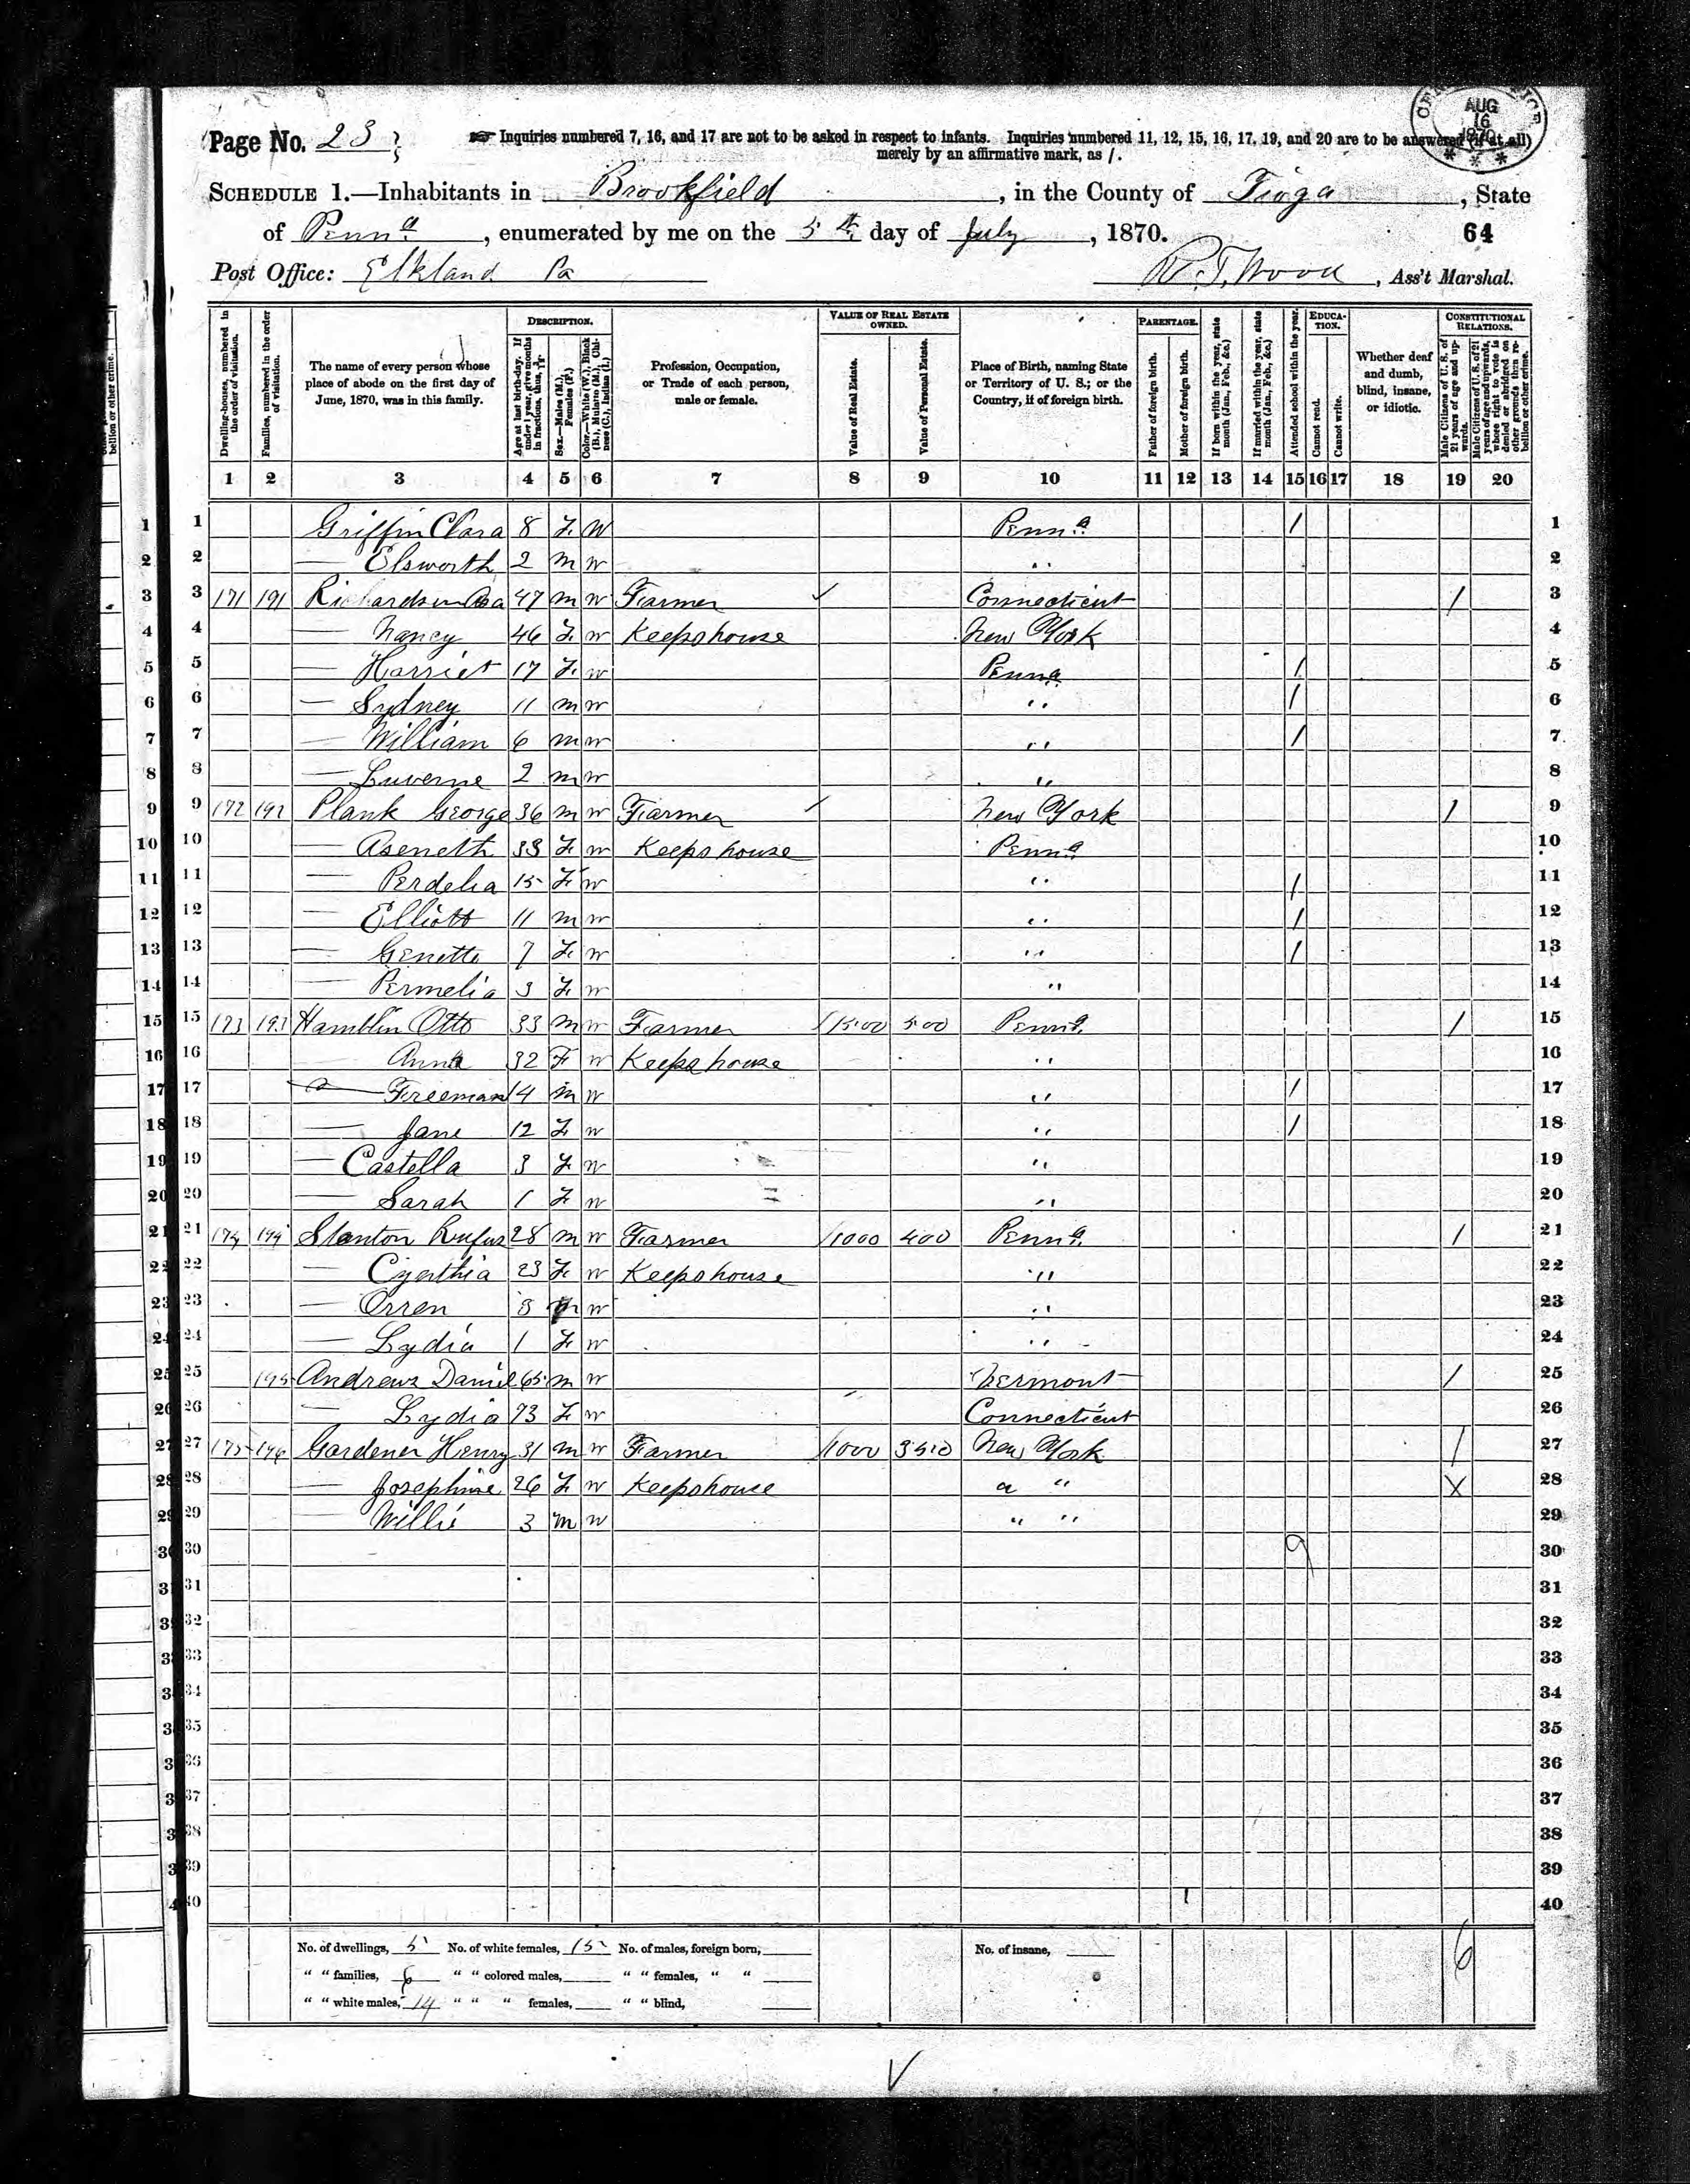 Page No. 23
☞ Inquiries numbered 7, 16, and 17 are not to be asked in respect to infants. Inquiries numbered 11, 12, 15, 16, 17, 19, and 20 are to be answered (if at all)
merely by an affirmative mark, as /.
AUG
16
1870
SCHEDULE 1.—Inhabitants in Brookfield, in the County of Tioga, State
of Penna., enumerated by me on the 5th day of July, 1870. 64
Post Office: Elkland Pa W. T. Wood, Ass't Marshal.
Dwelling-houses, numbered in the order of visitation.
Families, numbered in the order of visitation.
The name of every person whose place of abode on the first day of June, 1870, was in this family.
DESCRIPTION.
Age at last birth-day. If under 1 year, give months in fractions, thus, 3/12.
Sex.—Males (M.), Females (F.)
Color.—White (W.), Black (B.), Mulatto (M.), Chinese (C.), Indian (I.)
Profession, Occupation, or Trade of each person, male or female.
VALUE OF REAL ESTATE OWNED.
Value of Real Estate.
Value of Personal Estate.
Place of Birth, naming State or Territory of U. S.; or the Country, if of foreign birth.
PARENTAGE.
Father of foreign birth.
Mother of foreign birth.
If born within the year, state month (Jan., Feb., &c.)
If married within the year, state month (Jan., Feb., &c.)
Attended school within the year.
EDUCATION.
Cannot read.
Cannot write.
Whether deaf and dumb, blind, insane, or idiotic.
CONSTITUTIONAL RELATIONS.
Male Citizens of U. S. of 21 years of age and upwards.
Male Citizens of U. S. of 21 years of age and upwards, whose right to vote is denied or abridged on other grounds than rebellion or other crime.
1 2 3 4 5 6 7 8 9 10 11 12 13 14 15 16 17 18 19 20
1 1 Griffin Clara 8 F W Penna. / 1
2 2 — Elsworth 2 M W " 2
3 3 171 191 Richardson Asa 47 M W Farmer ✓ Connecticut / 3
4 4 — Nancy 46 F W Keeps house New York 4
5 5 — Harriet 17 F W Penna / 5
6 6 — Sydney 11 M W " / 6
7 7 — William 6 M W " / 7
8 8 — Luverne 2 M W " 8
9 9 172 192 Plank George 36 M W Farmer / New York / 9
10 10 — Aseneth 33 F W Keeps house Penna 10
11 11 — Perdelia 15 F W " / 11
12 12 — Elliott 11 M W " / 12
13 13 — Genette 7 F W " / 13
14 14 — Permelia 3 F W " 14
15 15 173 193 Hamblin Otto 33 M W Farmer /1500 500 Penna. / 15
16 16 — Anna 32 F W Keeps house " 16
17 17 — Freeman 14 M W " / 17
18 18 — Jane 12 F W " / 18
19 19 — Castella 3 F W " 19
20 20 — Sarah 1 F W " 20
21 21 174 194 Stanton Rufus 28 M W Farmer /1000 400 Penna. / 21
22 22 — Cynthia 23 F W Keeps house " 22
23 23 — Orren 3 M W " 23
24 24 — Lydia 1 F W " 24
25 25 195 Andrews Daniel 65 M W Vermont / 25
26 26 — Lydia 73 F W Connecticut 26
27 27 175 196 Gardener Henry 31 M W Farmer /1000 350 New York / 27
28 28 — Josephine 26 F W Keeps house " " X 28
29 29 — Willie 3 M W " " 29
30 9 30
31 31
32 32
33 33
34 34
35 35
36 36
37 37
38 38
39 39
40 40
No. of dwellings, 5 No. of white females, 15 No. of males, foreign born, No. of insane, 6
" " families, 6 " " colored males, " " females, " "
" " white males, 14 " " " females, " " blind,